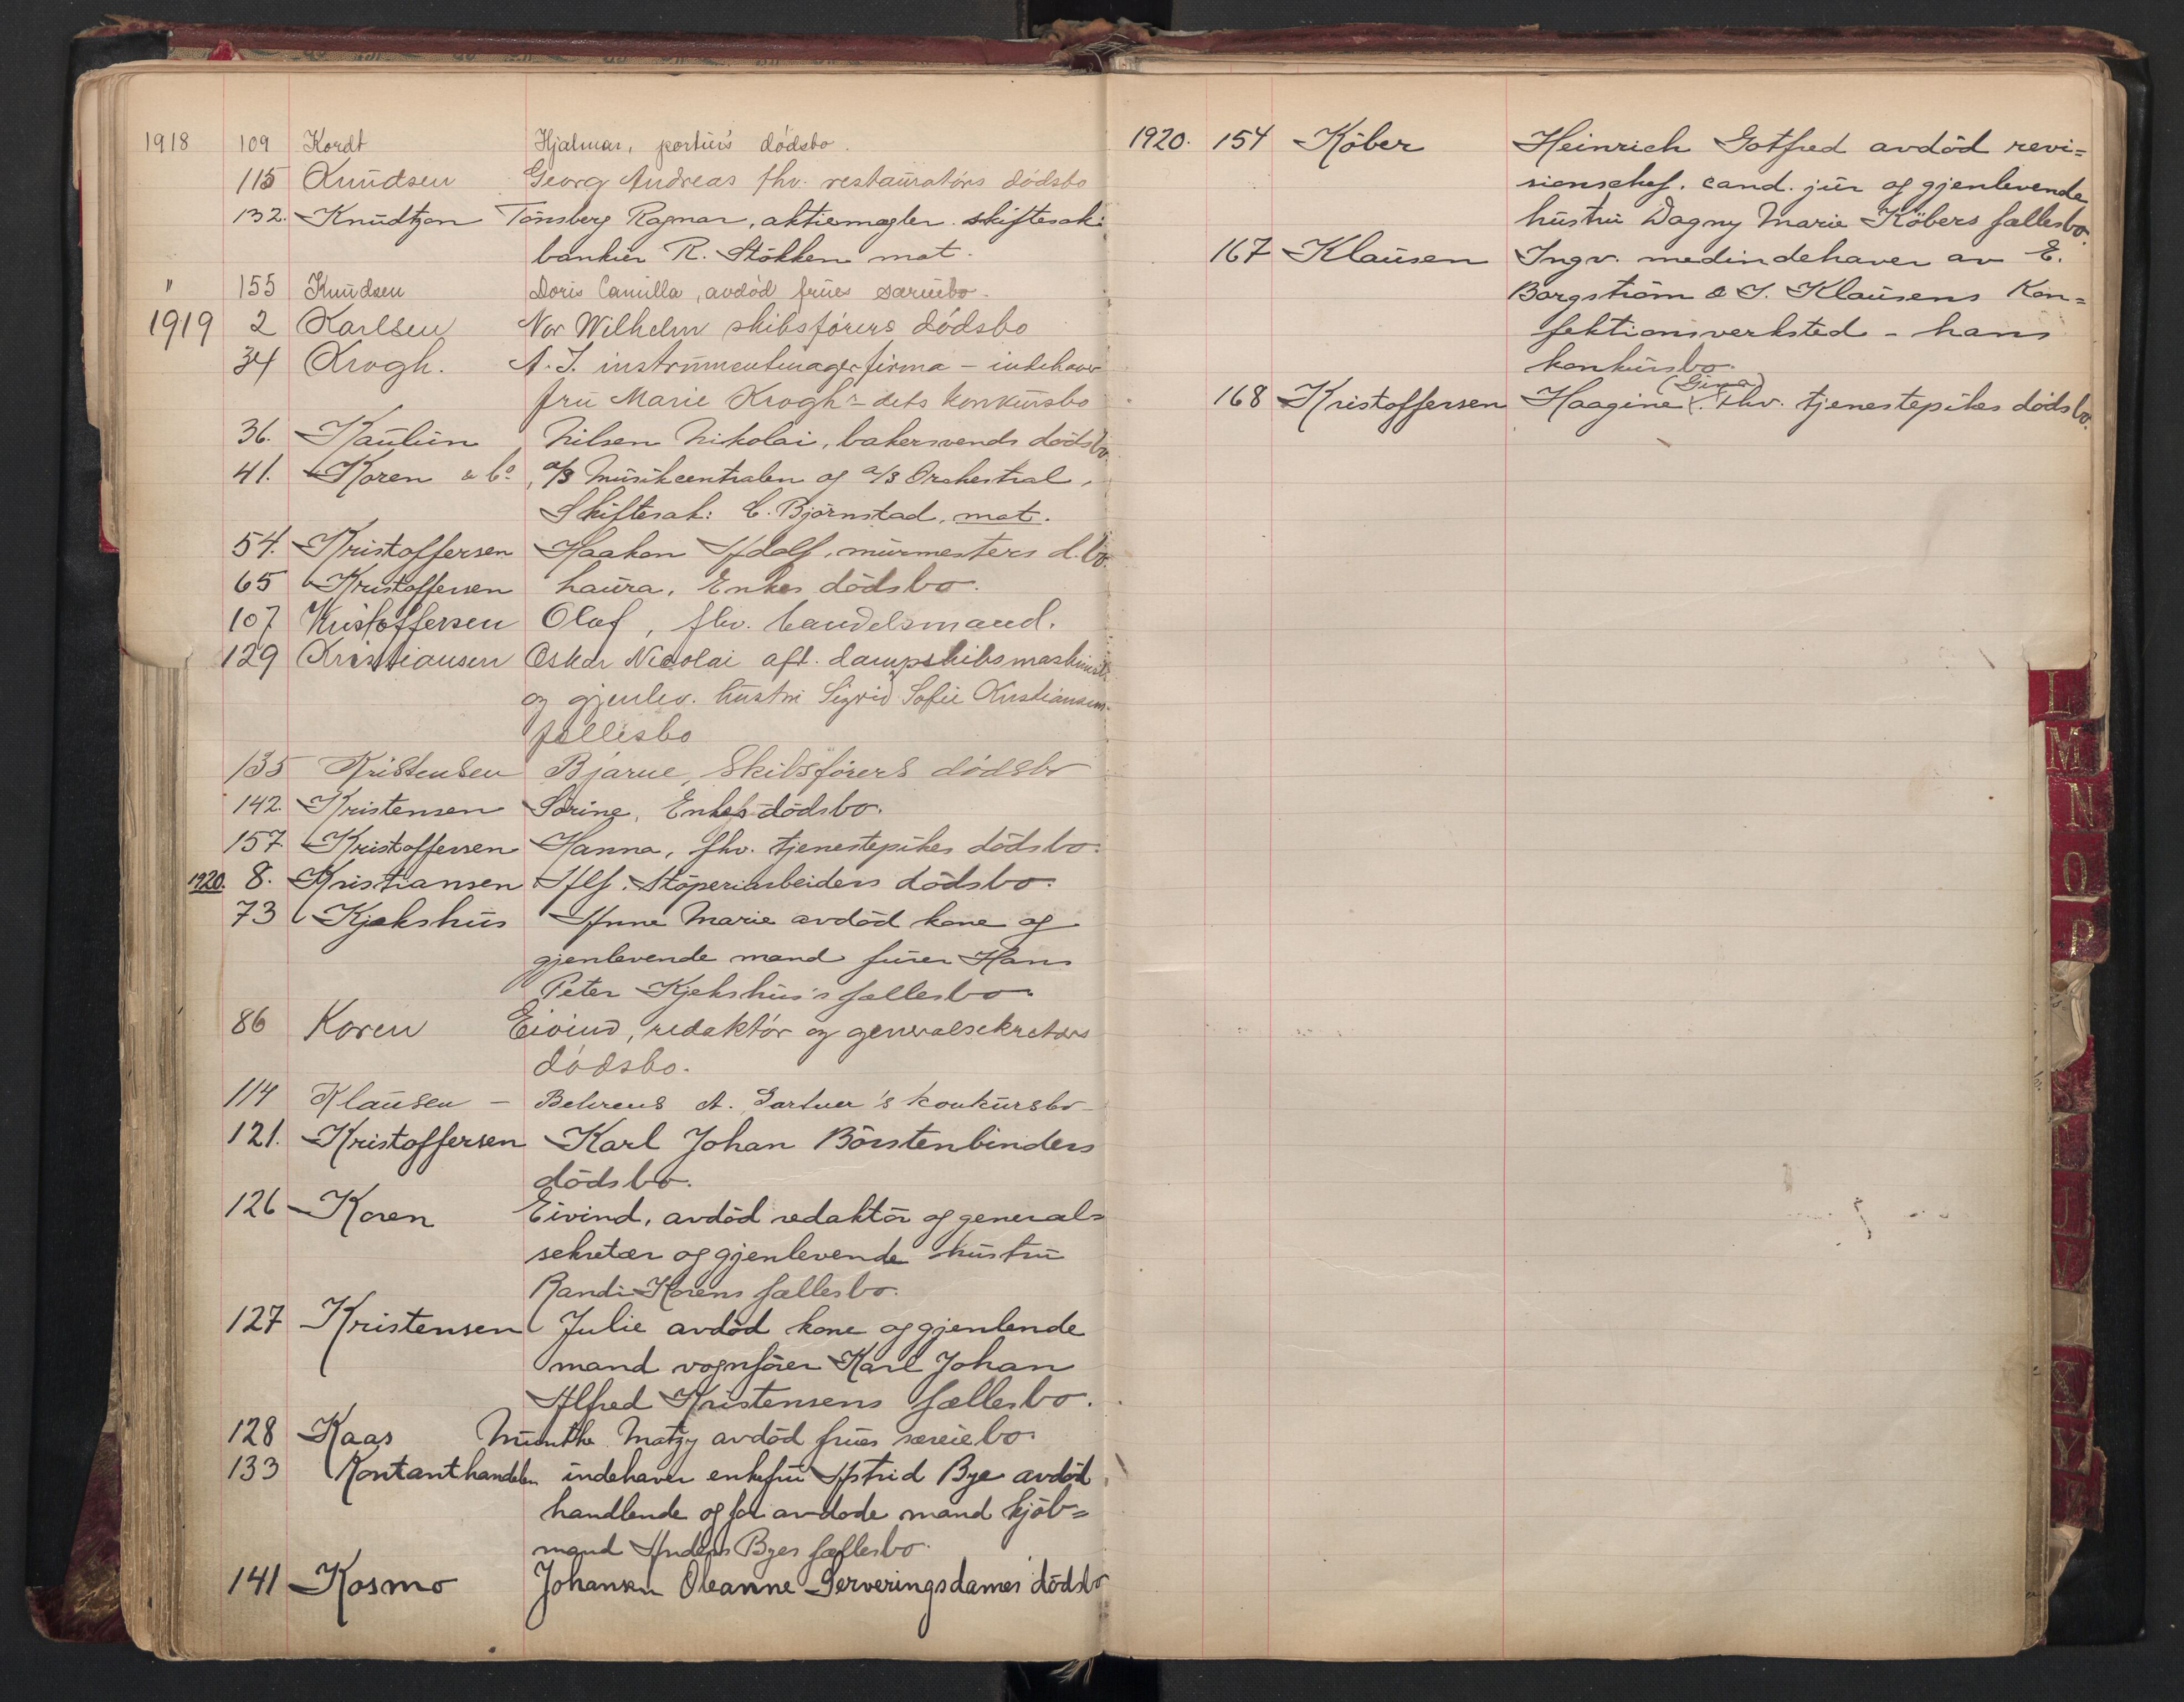 1918 109 Kordt Hjalmar, portiers dödsbo.
115 Knudsen Georg Andreas fhv. restauratörs dödsbo
132. Knudtzon Tönsberg Ragnar, aktiemægler skiftesak:
bankier R. Stökken mot.
" 155 Knudsen Doris Camilla, avdöd frues særeiebo.
1919 2 Karlsen Nor Wilhelm skibsförers dödsbo
34 Krogh. A. J. instrumentmagerfirma - indehaver
fru Marie Krogh - dets konkursbo
36. Kaulin Nilsen Nikolai, bakersvends dödsbo.
41. Koren & Co. , a/s Musikcentralen og a/s Orchestral,
Skiftesak: C. Björnstad, mot.
54. Kristoffersen Haakon Adolf, murmesters d.bo.
65 Kristoffersen Laura, Enkes dödsbo.
107 Kristoffersen Olaf, fhv. handelsmand.
129 Kristiansen Oskar Nicolai afd. dampskibsmaskinist
og gjenlev. hustru Sigrid Sofie Kristiansens
fællesbo
135 Kristensen Bjarne, Skibsförers dödsbo
142. Kristensen Sörine, Enkes dödsbo.
157. Kristoffersen Hanna, fhv. tjenestepikes dödsbo.
1920. 8. Kristiansen Alf. Stöperiarbeiders dödsbo.
73 Kjekshus Anne Marie avdöd kone og
gjenlevende mand furer Hans
Peter Kjekshus's fællesbo.
86 Koren Eivind, redaktör og generalsekretærs
dödsbo.
114 Klausen - Behrens A. Gartner's konkursbo
121. Kristoffersen Karl Johan Börstenbinders
dödsbo.
126 Koren Eivind, avdöd redaktör og general=
sekretær og gjenlevende hustru
Randi Korens fællesbo.
127 Kristensen Julie avdöd kone og gjenlende
mand vognförer Karl Johan
Alfred Kristensens fællesbo.
128 Kaas Munthe Matzy avdöd frues særeiebo.
133 Kontanthandelen indehaver enkefru Astrid Bye avdöd
handlende og for avdode mand kjöb=
mand Anders Byes fællesbo.
141 Kosmo Johansen Oleanne Serveringsdames dödsbo
1920. 154 Köber Heinrich Gotfred avdöd revi=
sionschef. cand. jur og gjenlevende
hustru Dagny Marie Köbers fællesbo.
167 Klausen Ingv. medindehaver av E.
Borgström & J. Klausens Kon=
fektionsverksted - hans
konkursbo.
168 Kristoffersen Haagine (Gina). Fhv. tjenestepikes dödsbo.
L
M
N
O
P
X
Y